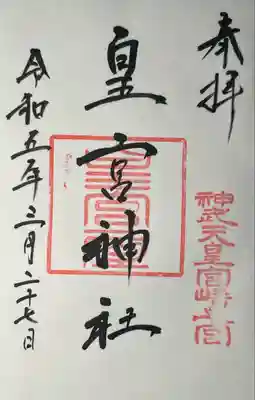 奉拝
神武天皇宮崎宮
皇宮神社
令和五年三月二十七日